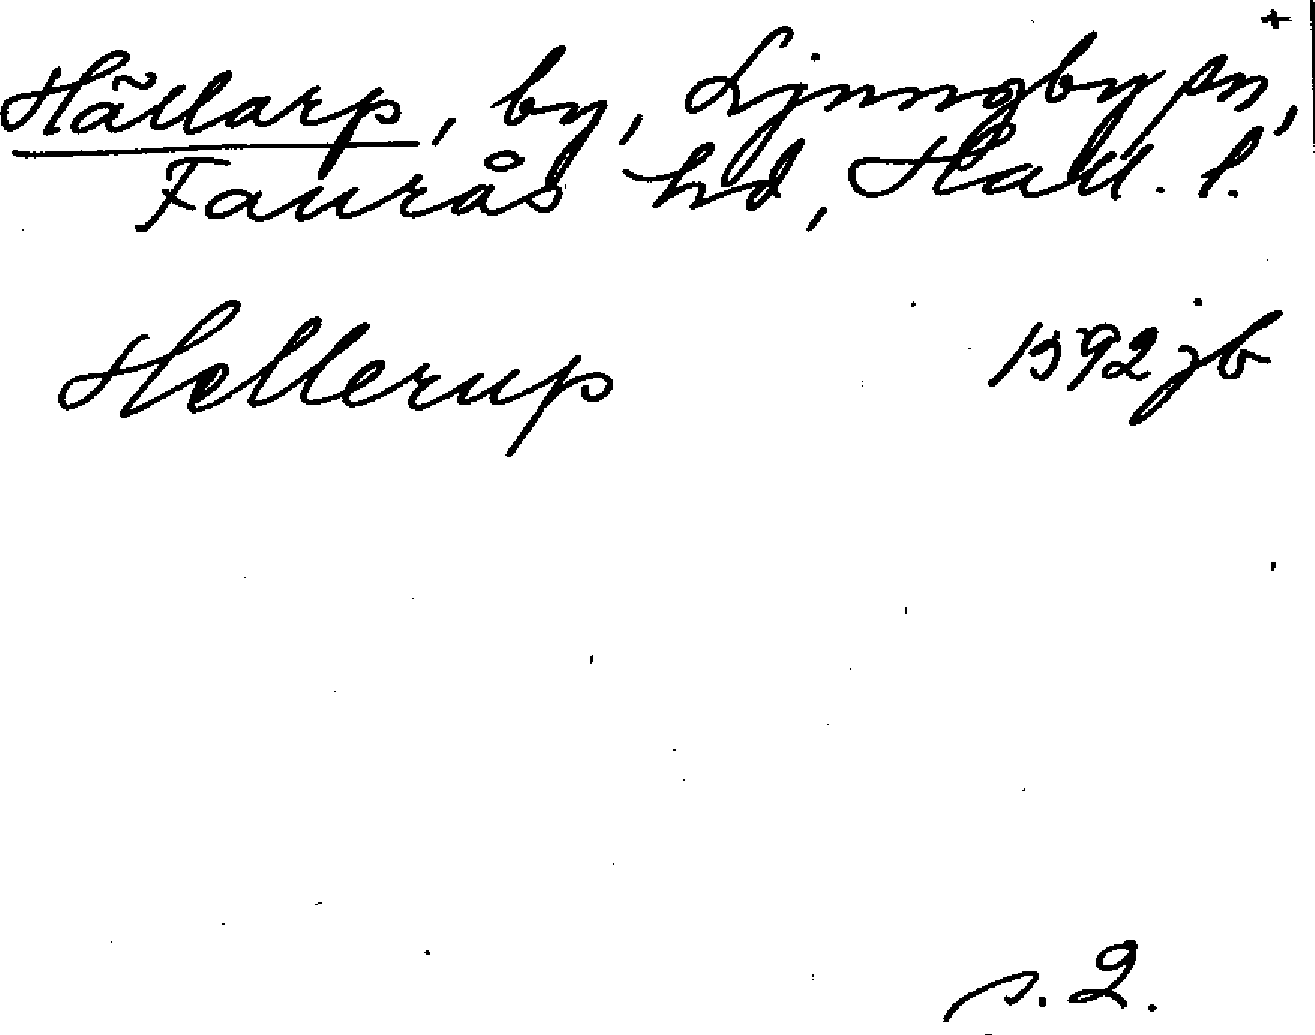 +
Hällarp, by, Ljungby sn,
Faurås hd, Hall. l.
Hellerup 1592 jb
s. 2.